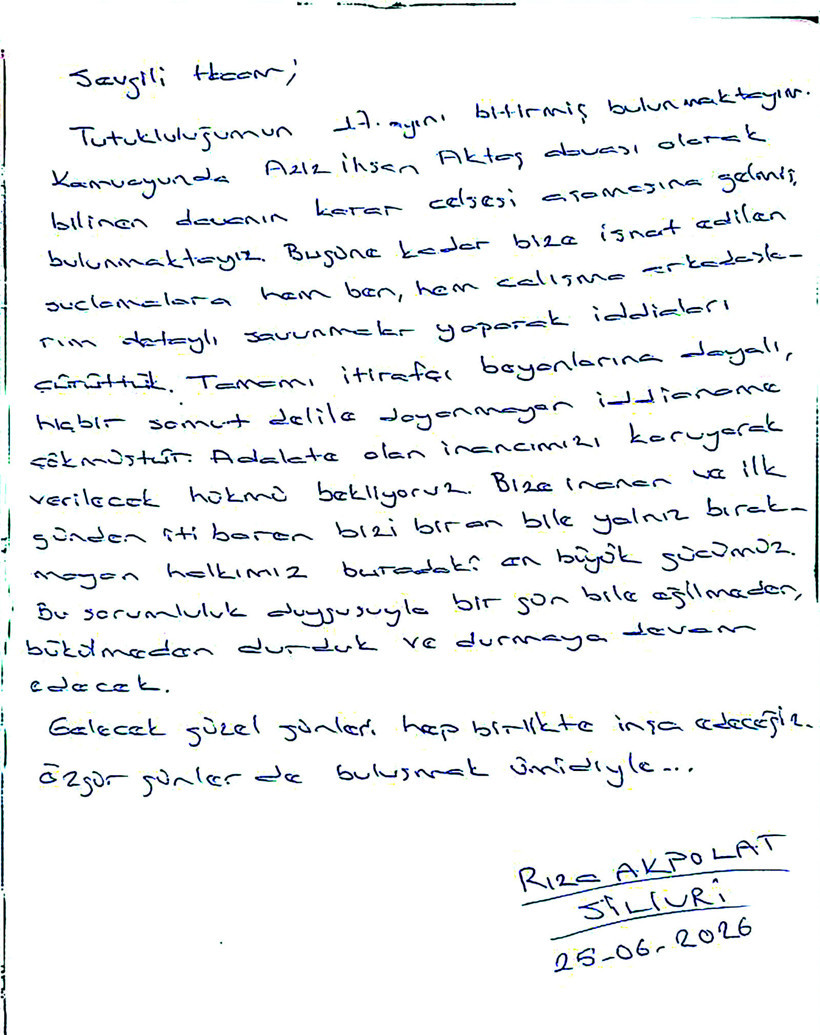 Sevgili Hasan;
Tutukluluğumun 17. ayını bitirmiş bulunmaktayım.
Kamuoyunda Aziz İhsan Aktaş davası olarak
bilinen davanın karar celsesi aşamasına gelmiş
bulunmaktayız. Bugüne kadar bize isnat edilen
suçlamalara hem ben, hem çalışma arkadaşla-
rım detaylı savunmalar yaparak iddiaları
çürüttük. Tamamı itirafçı beyanlarına dayalı,
hiçbir somut delile dayanmayan iddianame
çökmüştür. Adalete olan inancımızı koruyarak
verilecek hükmü bekliyoruz. Bize inanan ve ilk
günden itibaren bizi bir an bile yalnız bırak-
mayan halkımız buradaki en büyük gücümüz.
Bu sorumluluk duygusuyla bir gün bile eğilmeden,
bükülmeden durduk ve durmaya devam
edecek.
Gelecek güzel günleri hep birlikte inşa edeceğiz.
Özgür günler de buluşmak ümidiyle...
Rıza AKPOLAT
SİLİVRİ
25-06-2026